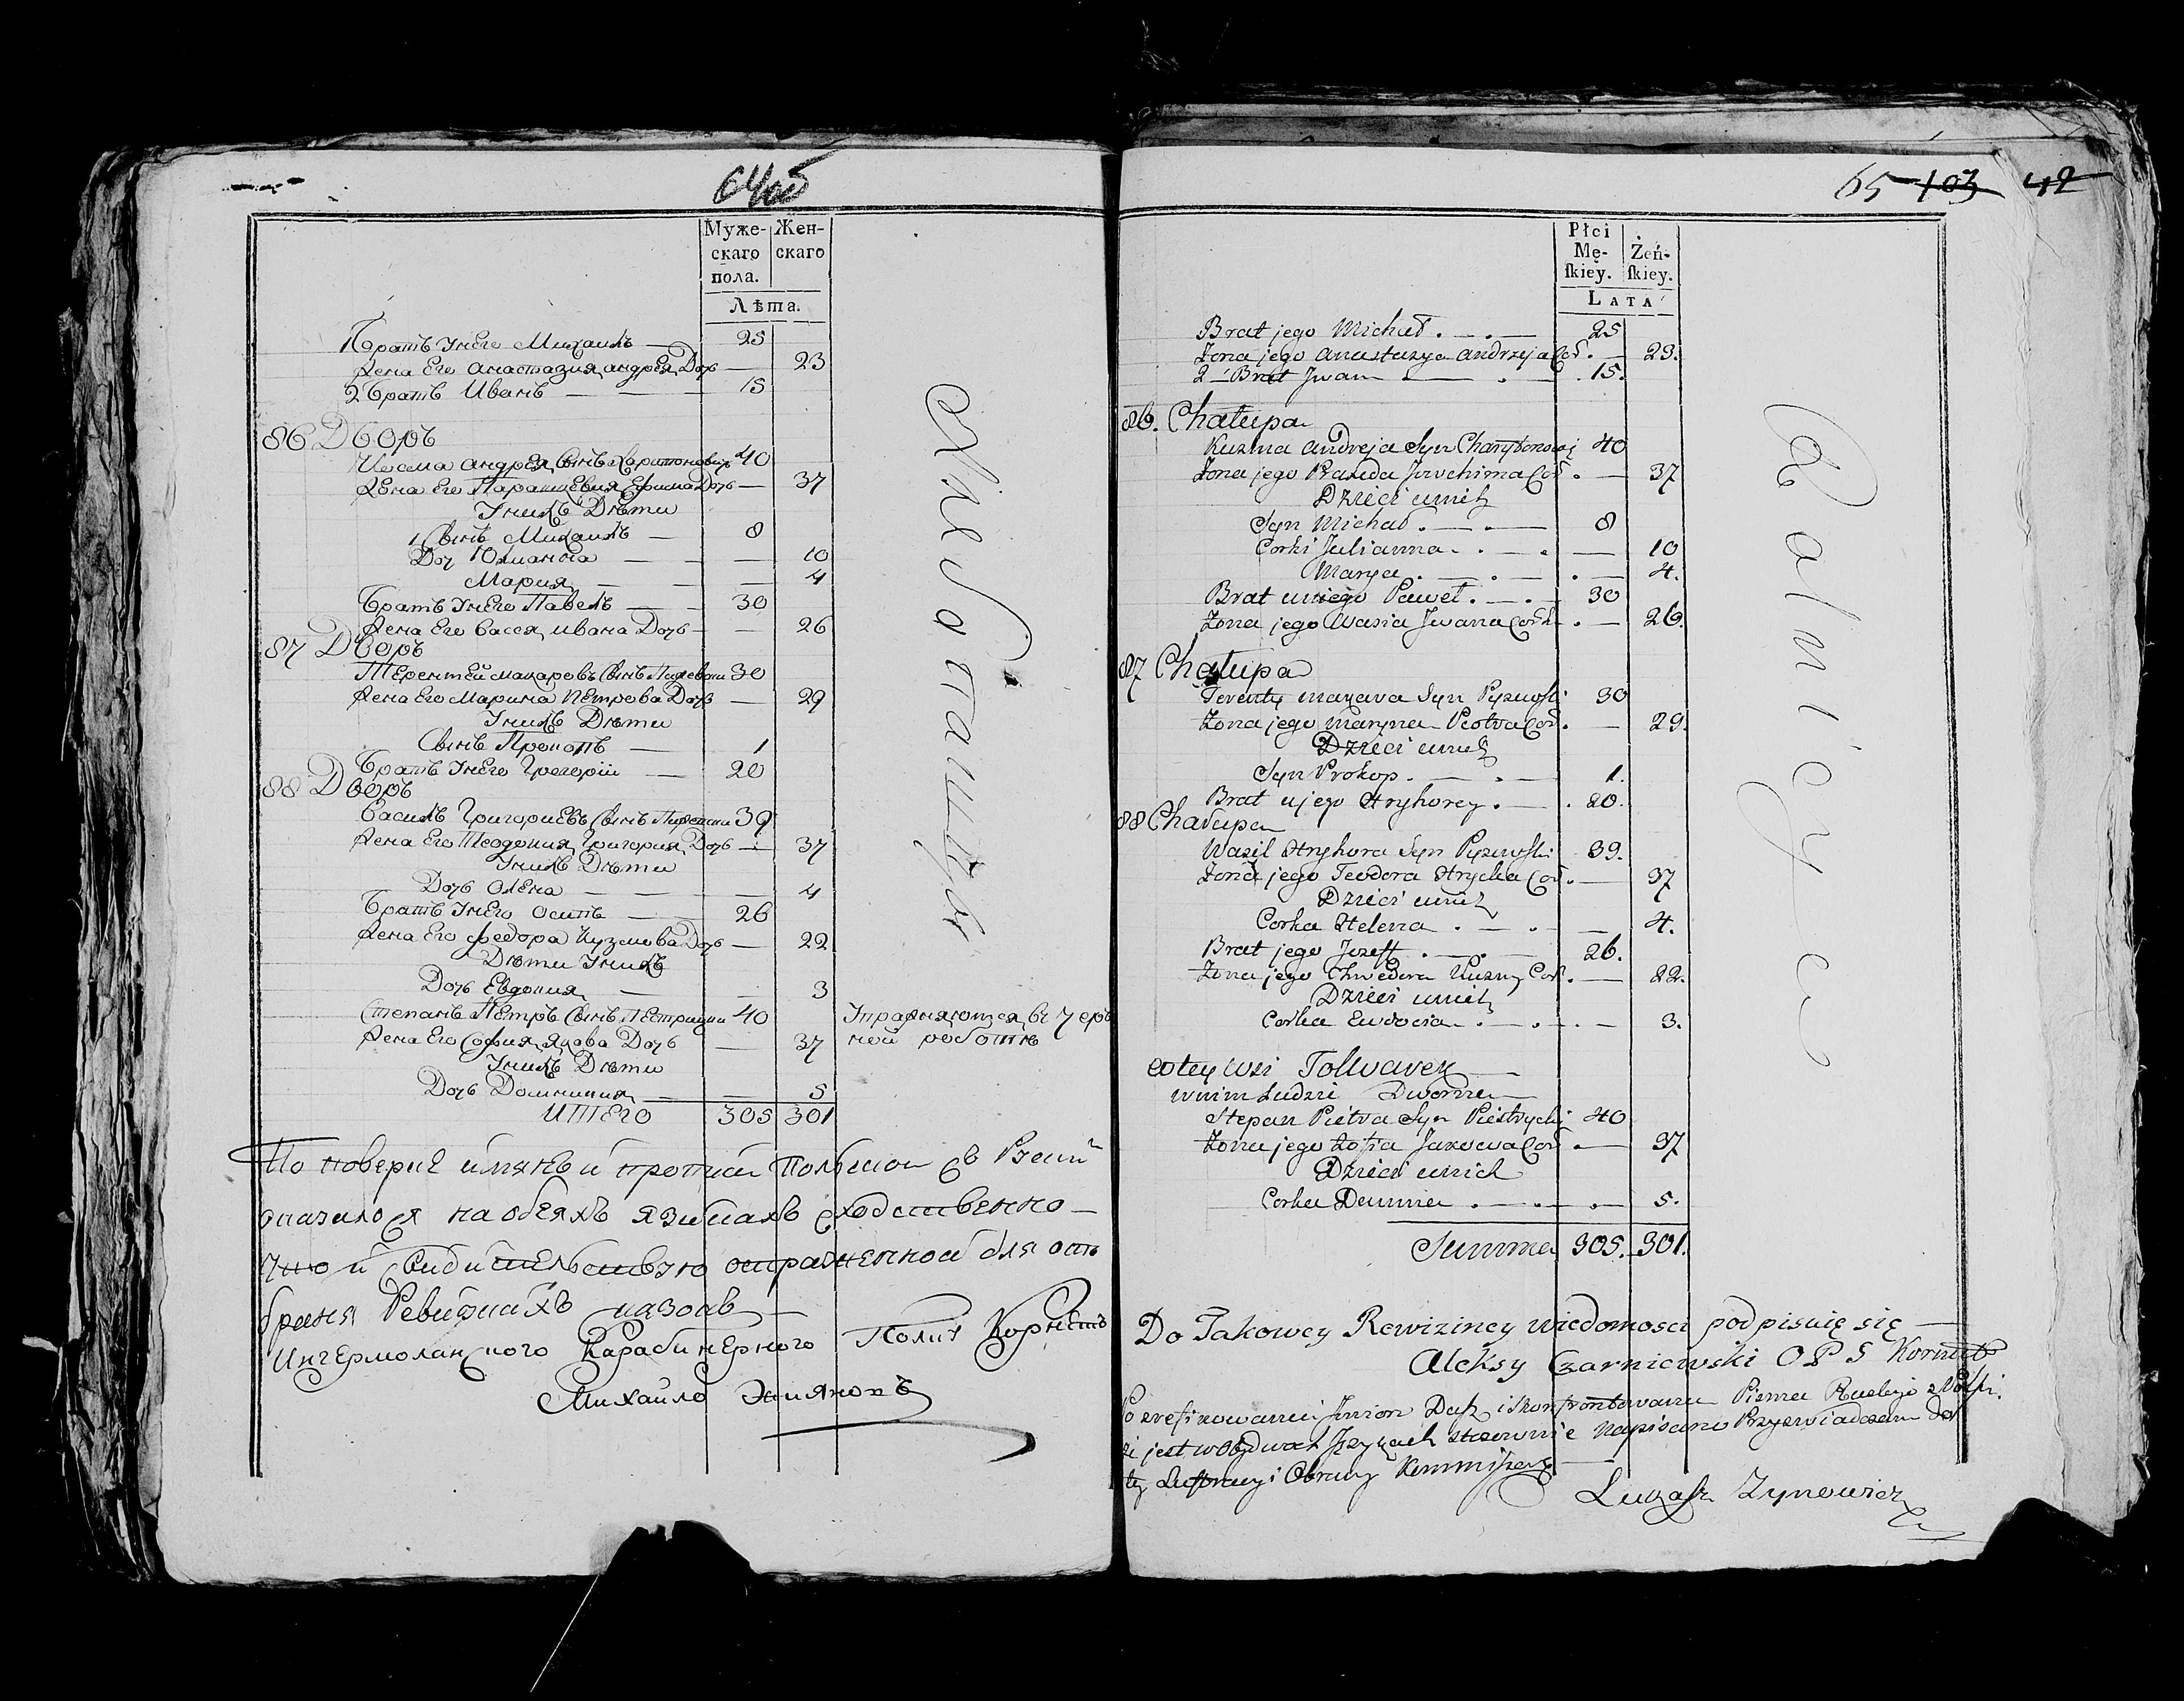 64об
Муже- Жен-
скаго скаго
пола.
Лѣта.
Братъ Унего Михаилъ — 25
Жена Его Анастазия Андрея Дочь — 23
2 братъ Иванъ — — 15
86 Дворъ
Андрея Сынъ Харитоновичъ 40
Жена Его Парашевия Ефима Дочь — 37
Унихъ Дѣти
1 Сынъ Михаилъ — 8
Доч Юлианна — — 10
Мария — — 4
Братъ Унего Павелъ — 30
Жена Его Васся Ивана Дочь — 26
87 Дворъ
Терентей Макаровъ Сынъ 30
Жена Его Марина Петрова Дочь — 29
Унихъ Дѣти
Сынъ Прокопъ — 1
Братъ Унего Григорiи — 20
88 Дворъ
Василъ Григориевъ Сынъ 39
Жена Его Теодония Григория Дочь — 37
Унихъ Дѣти
Дочь Олена — — 4
Братъ Унего Осипъ — 26
Жена Его Федора Кузмова Дочь — 22
Дѣти Унихъ
Дочь Евдокия — 3
Степанъ Петръ Сынъ Пестрицки 40 Упражняются въ черъ
Жена Его София Якова Дочь — 37 ной роботѣ
Унихъ Дѣти
Дочь Домникия — — 5
ИТЕГО 305 301
Хлебопашцы
По поверке имянъ и против Полской съ Руский
оказалося на обеяхъ язикахъ сходственно —
Ревизкихъ сказокъ
Ингермоланского Карабинерного Полку Корнетъ
Михайло
65 103 42
Płci Żeń-
Mę- ſkiey.
ſkiey.
LATA
Brat jego Michał . — . — 25
Żona jego Anastazya Andrzeja Cór. — 23.
2 – Brat Jwan — . — . 15.
86. Chałupa
Kuzma Andreja Syn Charytonowicz 40
Żona jego Praxeda Jowchima Cór . — 37
Dzieci unich
Syn Michał . — . — 8
Corki Julianna . . — . — 10
Marya . — . — . — 4.
Brat uniego Paweł . — . — 30
Żona jego Wasia Jwana Cork . — 26.
87 Chałupa
Terenty Makara Syn Pyzewski 30
Żona jego Maryna Piotra Cór . — 29.
Dzieci unich
Syn Prokop . — . — 1.
Brat ujego Hryhorey . — . 20.
88 Chałupa
Wasil Hryhora Syn Pyzewski 39.
Żona jego Teodora Hryćka Cór . — 37
Dzieci unich
Corka Helena . — . — 4.
Brat jego Jozeff . — . — 26.
Żona jego Chwedora Kuzmy Cór . — 22.
Dzieci unich
Corka Eudocia . — . — . — 3.
w tey wsi Folwarek —
w nim Ludzie Dworne
Stepan Pietra Syn Piestrycki 40
Żona jego Zofia Jakowa Cór . — 37
Dzieci unich
Corka Daumnia . — . — . — 5.
Summa 305. 301.
Rolnicy
Do Takowey Rewizиney wiedomosci podpisuię się —
Aleksy Czarniewski O P S Kornet
Po zrefikowaniu Jmion Dusz i skonfrontowaniu Pisma Ruskiego z Polski.
iż jest w Obydwach Językach stosownie Napisano Przyświadczam do
tey Lustracyi Obrany Kommissarz —
Łukasz Zynowicz